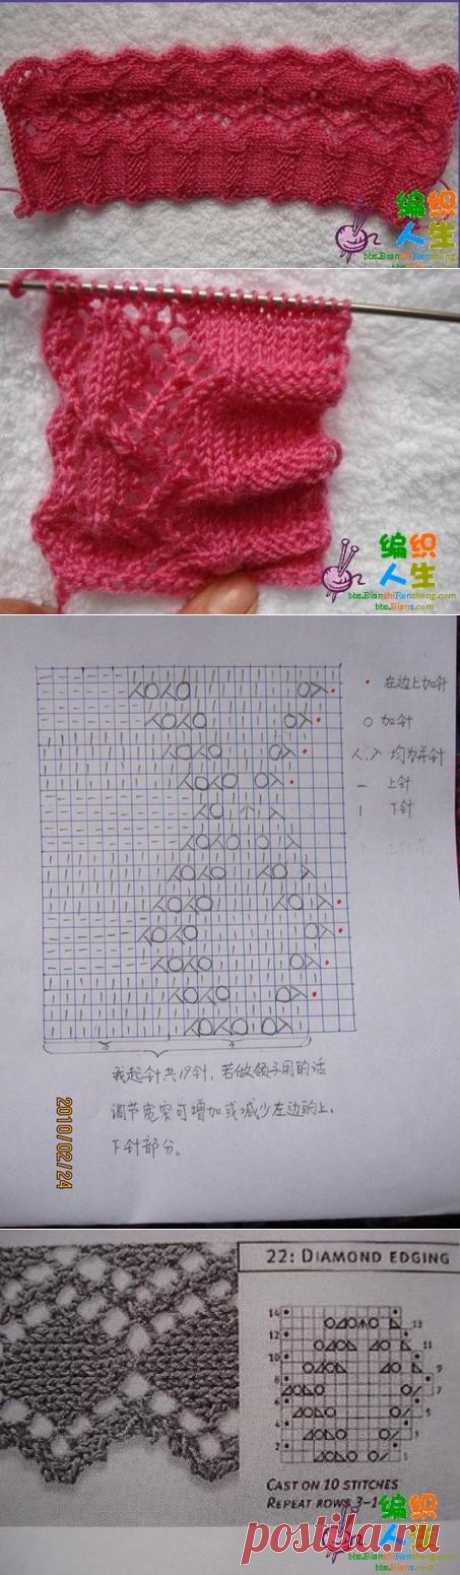 编织
人生
编织
人生
bbs.BianzhiRensheng.com
• 在边上加针
O 加针
人.入 均为并针
— 上针
| 下针
我起针共19针，若做领子用的话
调节宽窄可增加或减少左边的上、
下针部分。
2010/02/24
22: DIAMOND EDGING
14
12
10
8
6
4
2
13
11
9
7
5
3
1
CAST ON 10 STITCHES
REPEAT ROWS 3-14
编织
人生
postila.ru